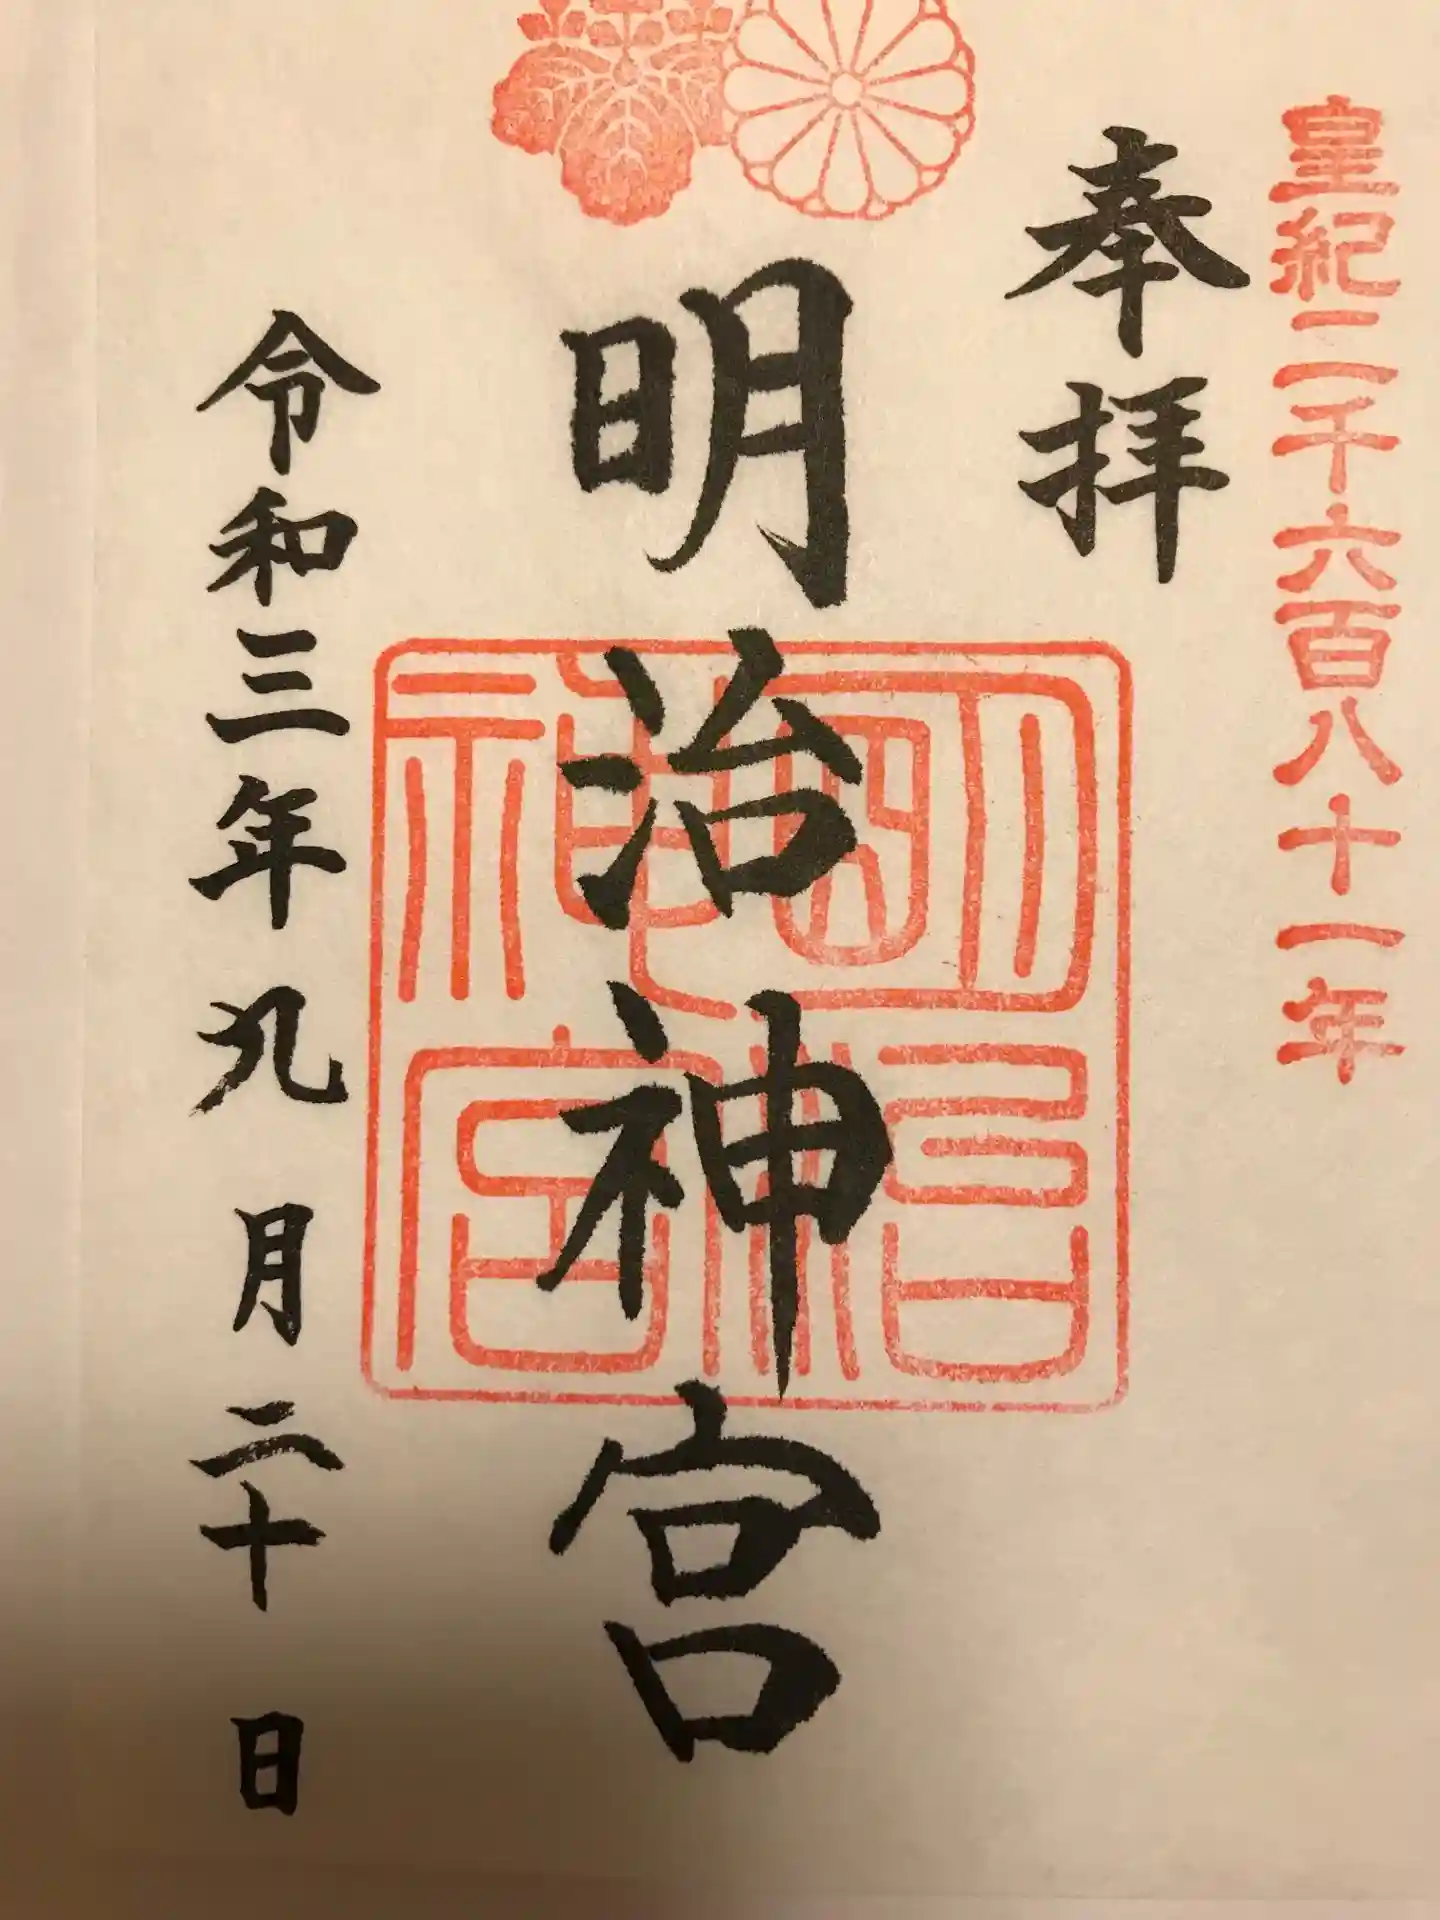 皇紀二千六百八十一年
奉拝
明治神宮
明治神宮
令和三年九月二十日